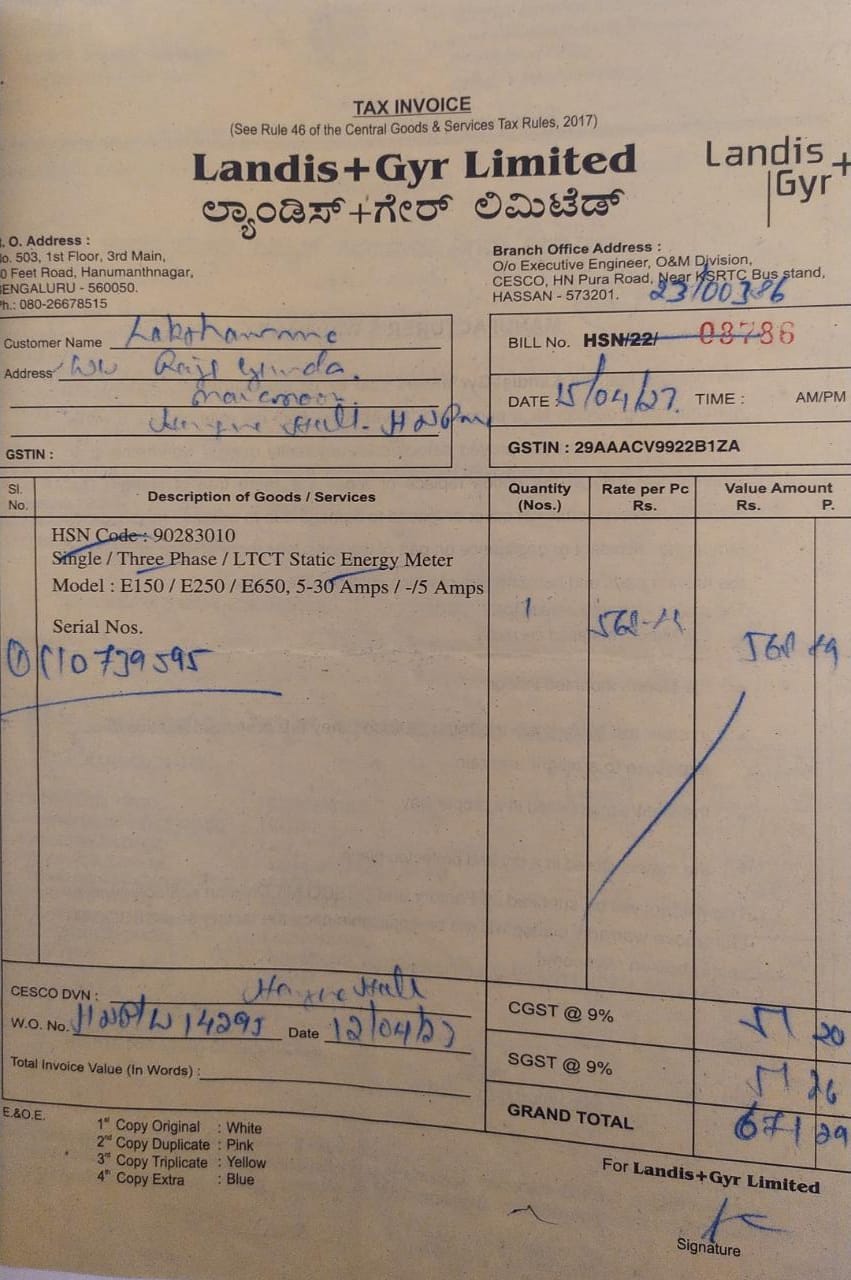 TAX INVOICE
(See Rule 46 of the Central Goods & Services Tax Rules, 2017)
Landis+Gyr Limited
Landis+
Gyr
ಲ್ಯಾಂಡಿಸ್+ಗೇರ್ ಲಿಮಿಟೆಡ್
. O. Address :
o. 503, 1st Floor, 3rd Main,
0 Feet Road, Hanumanthnagar,
ENGALURU - 560050.
h.: 080-26678515
Branch Office Address :
O/o Executive Engineer, O&M Division,
CESCO, HN Pura Road, Near KSRTC Bus stand,
HASSAN - 573201.
23/00386
Customer Name
Address
GSTIN :
BILL No. HSN/22/ 08786
DATE : 15/04/27. TIME : AM/PM
GSTIN : 29AAACV9922B1ZA
Sl. No. Description of Goods / Services Quantity (Nos.) Rate per Pc Rs. Value Amount Rs. P.
HSN Code : 90283010
Single / Three Phase / LTCT Static Energy Meter
Model : E150 / E250 / E650, 5-30 Amps / -/5 Amps
1
Serial Nos.
1 739595
568
CESCO DVN :
W.O. No. 14295 Date 12/04/27
Total Invoice Value (In Words) :
CGST @ 9% 51
SGST @ 9% 51
GRAND TOTAL 671 29
E.&O.E.
1st Copy Original : White
2nd Copy Duplicate : Pink
3rd Copy Triplicate : Yellow
4th Copy Extra : Blue
For Landis+Gyr Limited
Signature